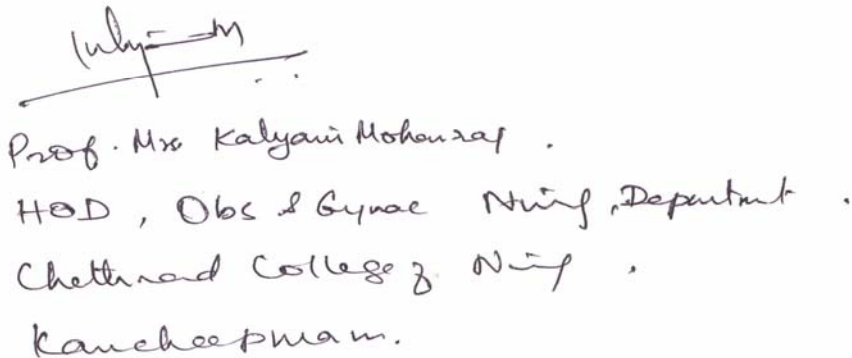 Prof. Mrs. Kalyani Mohanraj.
HOD, Obs & Gynae Nsing, Department.
Chettinad College of Nsing,
Kancheepuram.